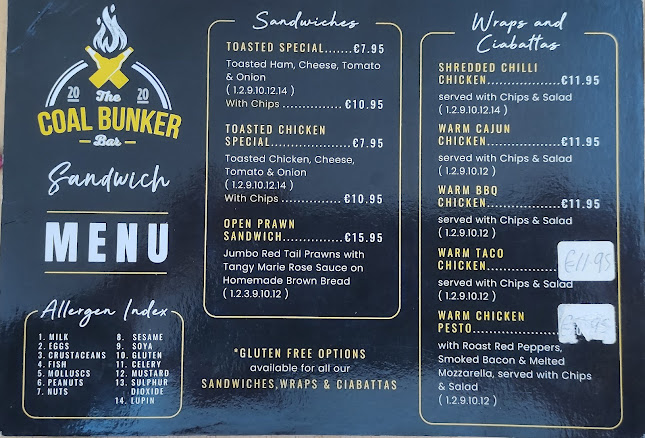 20 20
The
COAL BUNKER
Bar
Sandwich
MENU
Allergen Index
1. MILK
2. EGGS
3. CRUSTACEANS
4. FISH
5. MOLLUSCS
6. PEANUTS
7. NUTS
8. SESAME
9. SOYA
10. GLUTEN
11. CELERY
12. MUSTARD
13. SULPHUR
DIOXIDE
14. LUPIN
Sandwiches
TOASTED SPECIAL.......€7.95
Toasted Ham, Cheese, Tomato
& Onion
( 1.2.9.10.12.14 )
With Chips ...............€10.95
TOASTED CHICKEN
SPECIAL.....................€7.95
Toasted Chicken, Cheese,
Tomato & Onion
( 1.2.9.10.12.14 )
With Chips ...............€10.95
OPEN PRAWN
SANDWICH................€15.95
Jumbo Red Tail Prawns with
Tangy Marie Rose Sauce on
Homemade Brown Bread
( 1.2.3.9.10.12 )
*GLUTEN FREE OPTIONS
available for all our
SANDWICHES,WRAPS & CIABATTAS
Wraps and
Ciabattas
SHREDDED CHILLI
CHICKEN....................€11.95
served with Chips & Salad
( 1.2.9.10.12.14 )
WARM CAJUN
CHICKEN....................€11.95
served with Chips & Salad
( 1.2.9.10.12 )
WARM BBQ
CHICKEN....................€11.95
served with Chips & Salad
( 1.2.9.10.12 )
WARM TACO
CHICKEN.................... €11.95
served with Chips & Salad
( 1.2.9.10.12 )
WARM CHICKEN
PESTO.......................
with Roast Red Peppers,
Smoked Bacon & Melted
Mozzarella, served with Chips
& Salad
( 1.2.9.10.12 )